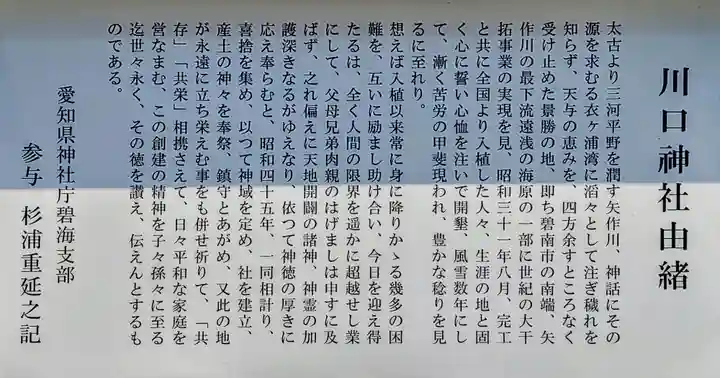 川口神社由緒
太古より三河平野を潤す矢作川、神話にその
源を求むる衣ヶ浦湾に滔々として注ぎ穢れを
知らず、天与の恵みを、四方余すところなく
受け止めた景勝の地、即ち碧南市の南端、矢
作川の最下流遠浅の海原の一部に世紀の大干
拓事業の実現を見、昭和三十一年八月、完工
と共に全国より入植した人々、生涯の地と固
く心に誓い心恤を注いで開墾、風雪数年にし
て、漸く苦労の甲斐現われ、豊かな稔りを見
るに至れり。
想えば入植以来常に身に降りかゝる幾多の困
難を、互いに励まし助け合い、今日を迎え得
たるは、全く人間の限界を遥かに超越せし業
にして、父母兄弟肉親のはげましは申すに及
ばず、之れ偏えに天地開闢の諸神、神霊の加
護深きなるがゆえなり、依つて神徳の厚きに
応え奉らむと、昭和四十五年、一同相計り、
喜捨を集め、以つて神域を定め、社を建立、
産土の神々を奉祭、鎮守とあがめ、又此の地
が永遠に立ち栄えむ事をも併せ祈りて、「共
存」「共栄」相携さえて、日々平和な家庭を
営なまむ、この創建の精神を子々孫々に至る
迄世々永く、その徳を讃え、伝えんとするも
のである。
愛知県神社庁碧海支部
参与 杉浦重延之記